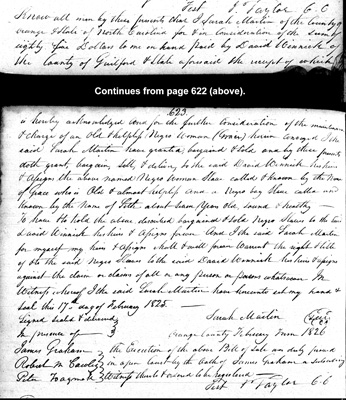 Test J. Taylor C.C
Know all men by these presents that I Sarah Martin of the County of
Orange & State of North Carolina for & in Consideration of the Sum of
eighty five Dollars to me in hand paid by David Winnick of
the County of Guilford & State aforesaid the receipt of which
Continues from page 622 (above).
623
is hereby acknowledged And for the further Consideration of the maintenance
& charge of an Old & helpless Negro Woman (Grace) herein conveyed I the
said Sarah Martin have granted, bargained & sold and by these presents
doth grant, bargain, sell, & deliver, to the said David Winnick his heirs
& Assigns the above named Negro Woman Slave called & known by the Name
of Grace who is Old & almost helpless And a Negro boy Slave called and
known by the Name of Seth about Years old, sound & healthy
To have & to hold the above described bargained & sold Negro Slaves to the said
David Winnick his heirs & Assigns forever And I the said Sarah Martin
for myself my heirs & Assigns shall & will forever Warrant the right & title
of the said Negro Slaves to the said David Winnick his heirs & assigns
against the claim or claims of all or any person or persons whatsoever In
Witness whereof I the said Sarah Martin have hereunto set my hand &
Seal this 17th day of February 1825
Signed Sealed & delivered Sarah Martin (Seal)
In presence of Orange County February Term 1826
James Graham the Execution of the above Bill of Sale was duly proved
Robert M. in open Court by the Oath of James Graham a subscribing
Peter Witness thereto & ordered to be registered
Test J Taylor C.C